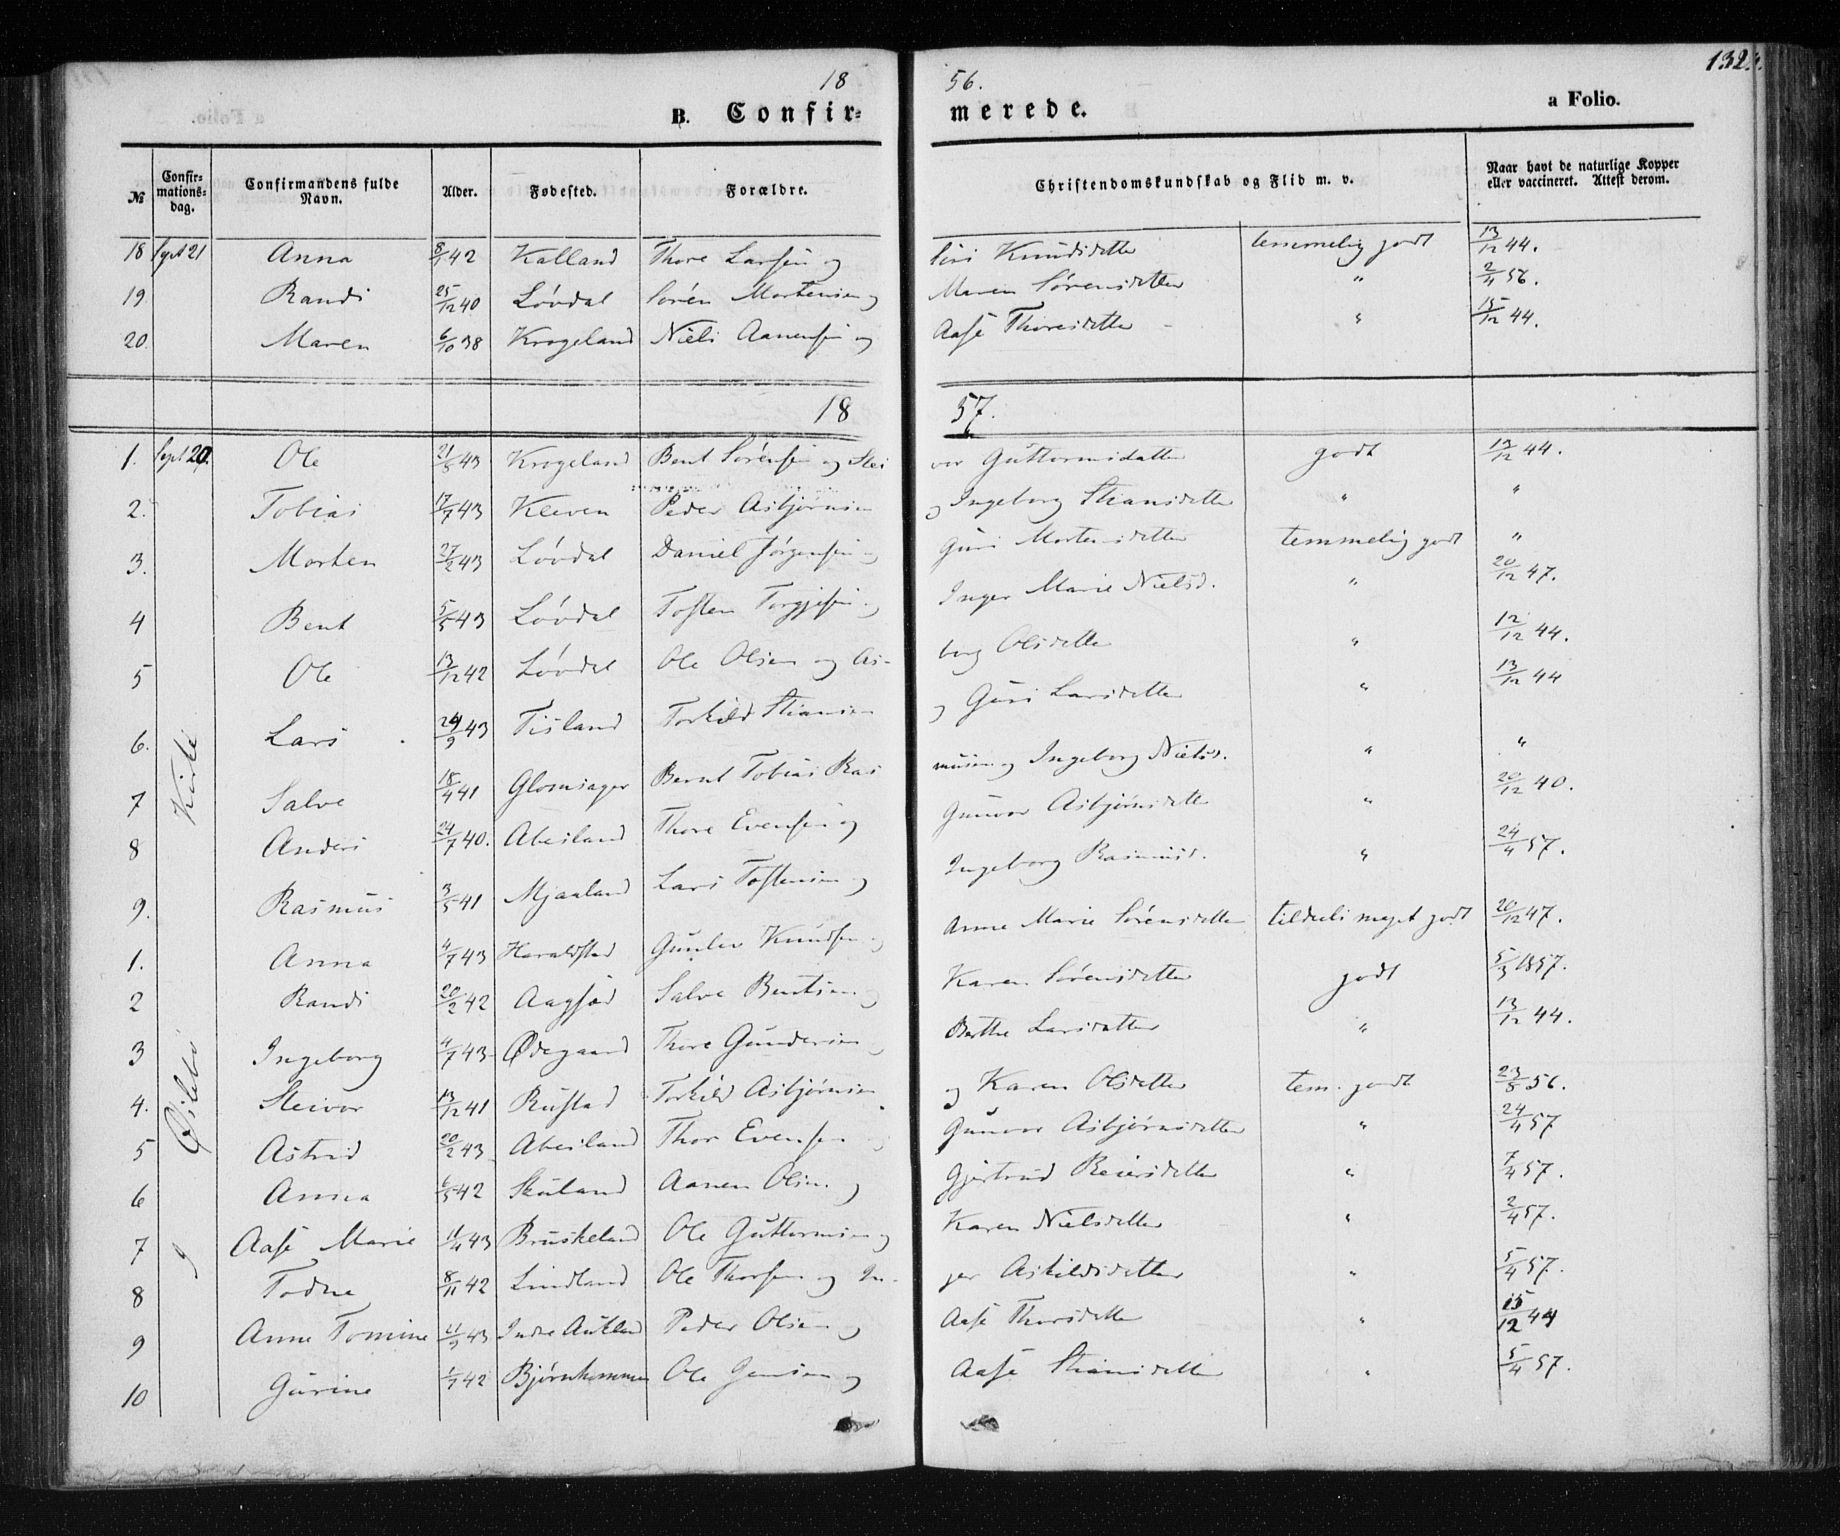 18 56. 132.
B. Confirmerede. a Folio.
№ Confirmationsdag. Confirmandens fulde Navn. Alder. Fødested. Forældre. Christendomskundskab og Flid m. v. Naar havt de naturlige Kopper eller vaccineret. Attest derom.
18 Sept 21 Anna 8/1 42 Kalland Thore Larsen og Siri Knudsdatter temmelig godt 13/12 44.
19 Randi 25/12 40 Løvdal Sørén Mortensen og Maren Sørensdatter " 2/4 56.
20. Maren 6/10 38 Krogeland Niels Aanensen og Aase Thoresdatter " 15/12 44.
18 57.
1. Sept 20. Ole 21/5 43 Krogeland Bent Sørensen og Steivor Guttormsdatter godt 13/12 44.
2. Tobias 17/7 43 Kleven Peder Asbjørnsen og Ingeborg Stiansdatter " "
3. Morten 27/2 43 Løvdal Daniel Jørgensen og Guri Mortensdatter temmelig godt "
4 Bent 5/5 43 Løvdal Tosten Torgjesen og Inger Marie Nielsd. " 20/12 47.
5 Ole 13/12 42 Løvdal Ole Olsen og Asborg Olsdatter " 12/12 44.
6. Lars 24/9 43 Tisland Torkild Stiansen og Guri Larsdatter " 13/12 44
7 Salve 18/4 41 Glomsager Bernt Tobias Rasmusen og Ingeborg Nielsd. " "
8 Anders 24/7 40. Abesland Thore Evensen og Gunvor Asbjørnsdatter " 20/12 40.
9. Rasmus 3/5 41 Mjaaland Lars Tostensen og Ingeborg Rasmusd. " 24/4 57.
Kirke
1. Anna 4/7 43 Haraldstad Gunlev Knudsen og Anne Marie Sørensdatter tildeels meget godt 20/12 47.
2 Randi 20/2 42 Aagsød Salve Bentsen og Karen Sørensdatter godt 5/3 1857.
3 Ingeborg 4/7 43 Ødegaard Thore Gundersen og Berthe Larsdatter " 13/12 44.
4. Steivor 13/12 41 Rustad Torkild Asbjørnsen og Karen Olsdatter tem. godt 23/5 56.
5 Astrid 20/2 43 Abesland Thor Evensen og Gunvor Asbjørnsdatter " 24/4 57
6 Anna 6/5 42 Skuland Aanen Olsen og Gjertrud Reiersdatter " 7/4 57.
7 Aase Marie 11/4 43 Bruskeland Ole Guttormsen og Karen Nielsdatter " 2/4 57.
8 Todne 8/11 42 Lindland Ole Thorsen og Inger Askildsdatter " 5/4 57.
9 Anne Tomine 21/9 43 Indre Autland Peder Olsen og Aase Thorsdatter " 15/12 44
10 Gurine 1/7 42 Bjørnhommen Ole Jensen og Aase Stiansdatter " 5/4 57.
Øslebø